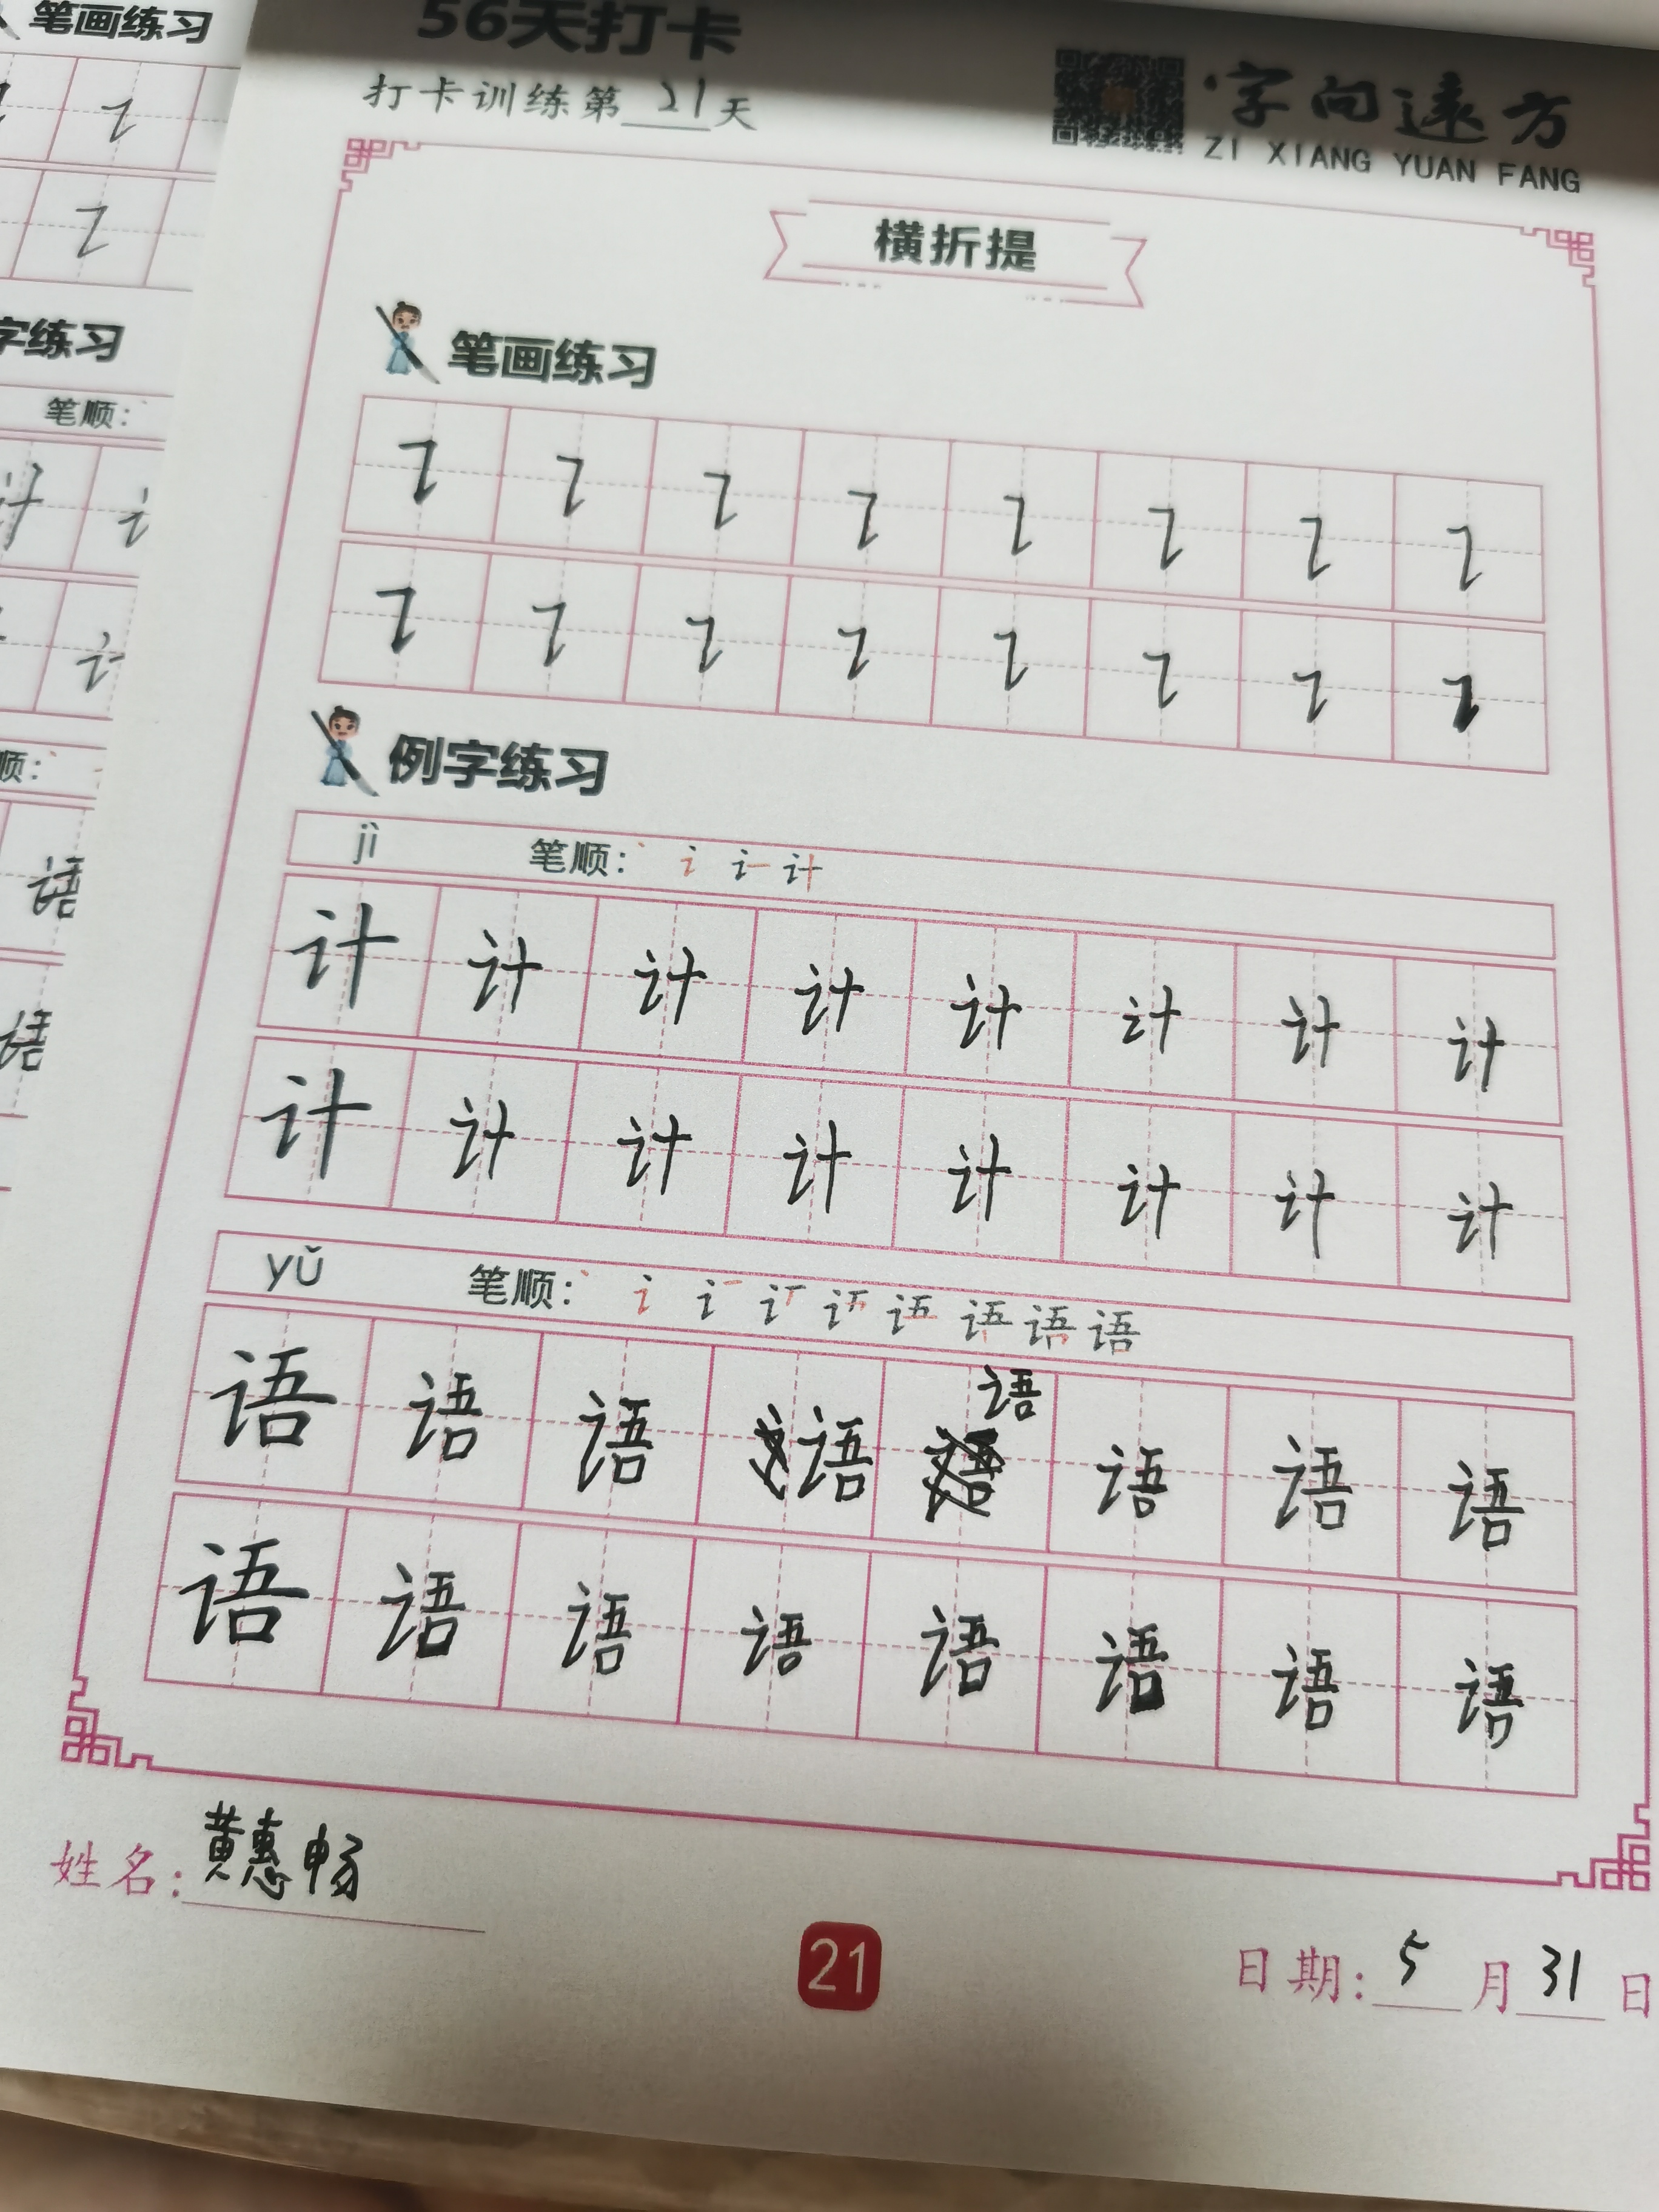 笔画练习
字练习
笔顺:
计
语
语
56天打卡
打卡训练第 21 天
字向远方
ZI XIANG YUAN FANG
横折提
笔画练习
例字练习
jì 笔顺: 计
计 计 计 计 计 计 计 计
计 计 计 计 计 计 计 计
yǔ 笔顺: 语 语 语 语
语 语 语 语 语 语 语 语
语 语 语 语 语 语 语 语
姓名: 黄惠畅
21
日期: 5 月 31 日